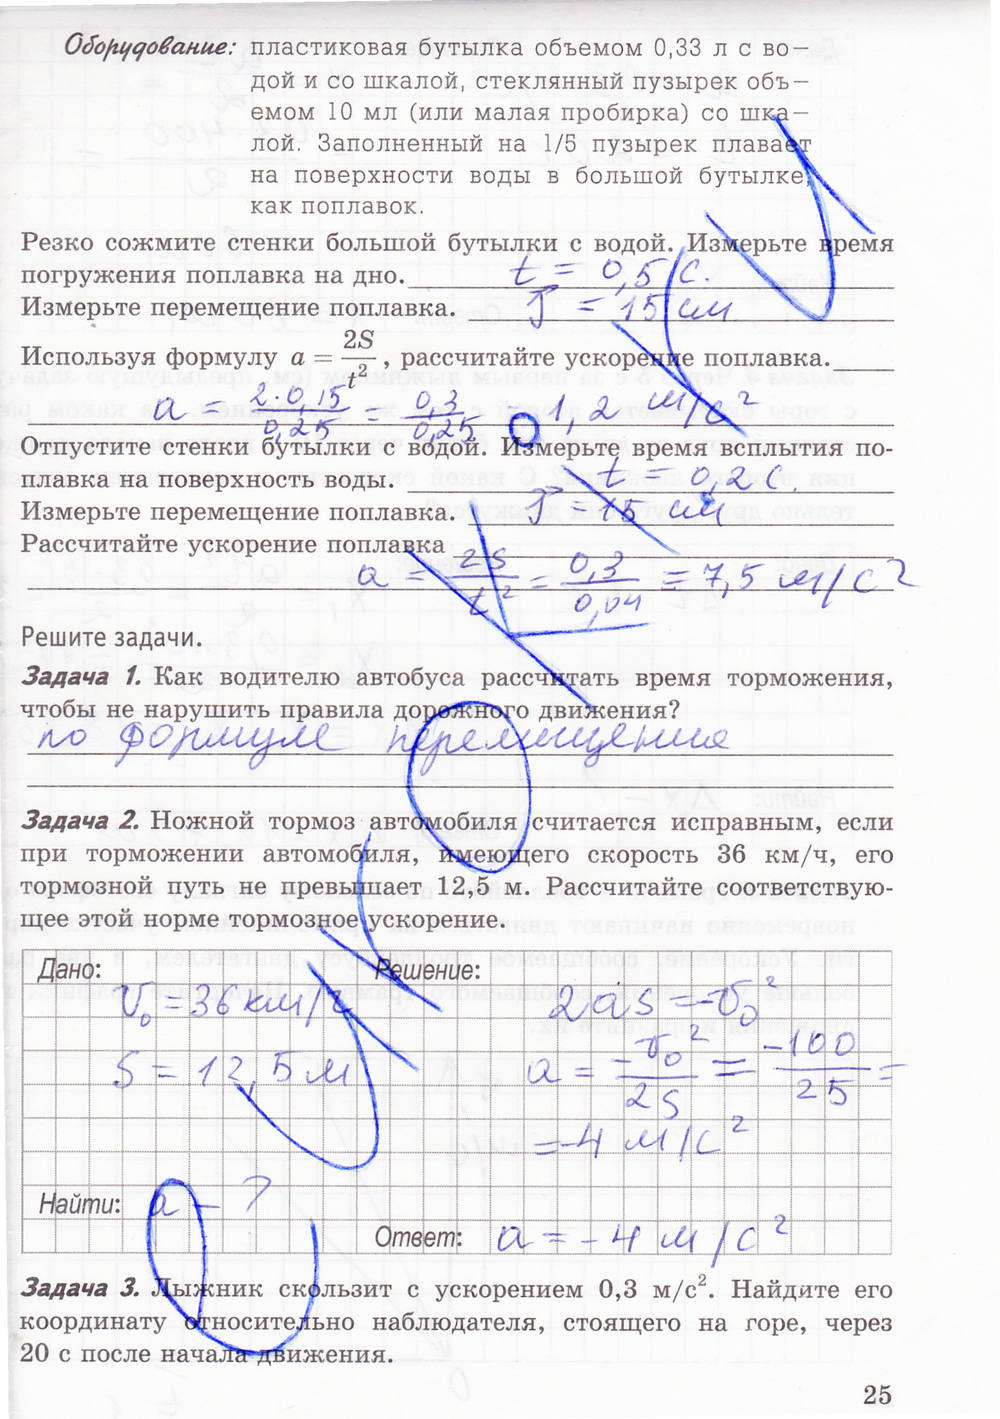 Оборудование: пластиковая бутылка объемом 0,33 л с во-
дой и со шкалой, стеклянный пузырек объ-
емом 10 мл (или малая пробирка) со шка-
лой. Заполненный на 1/5 пузырек плавает
на поверхности воды в большой бутылке,
как поплавок.
Резко сожмите стенки большой бутылки с водой. Измерьте время
погружения поплавка на дно. t = 0,5 с.
Измерьте перемещение поплавка. S = 15 см.
Используя формулу a = 2S/t², рассчитайте ускорение поплавка.
a = 2·0,15/0,25 = 0,3/0,25 = 1,2 м/с²
Отпустите стенки бутылки с водой. Измерьте время всплытия по-
плавка на поверхность воды. t = 0,2 с.
Измерьте перемещение поплавка. S = 15 см
Рассчитайте ускорение поплавка
a = 2S/t² = 0,3/0,04 = 7,5 м/с²
Решите задачи.
Задача 1. Как водителю автобуса рассчитать время торможения,
чтобы не нарушить правила дорожного движения?
по формуле перемещения
Задача 2. Ножной тормоз автомобиля считается исправным, если
при торможении автомобиля, имеющего скорость 36 км/ч, его
тормозной путь не превышает 12,5 м. Рассчитайте соответствую-
щее этой норме тормозное ускорение.
Дано: Решение:
v₀ = 36 км/ч 2aS = -v₀²
S = 12,5 м a = -v₀²/2S = -100/25 =
= -4 м/с²
Найти: a - ?
Ответ: a = -4 м/с²
Задача 3. Лыжник скользит с ускорением 0,3 м/с². Найдите его
координату относительно наблюдателя, стоящего на горе, через
20 с после начала движения.
25